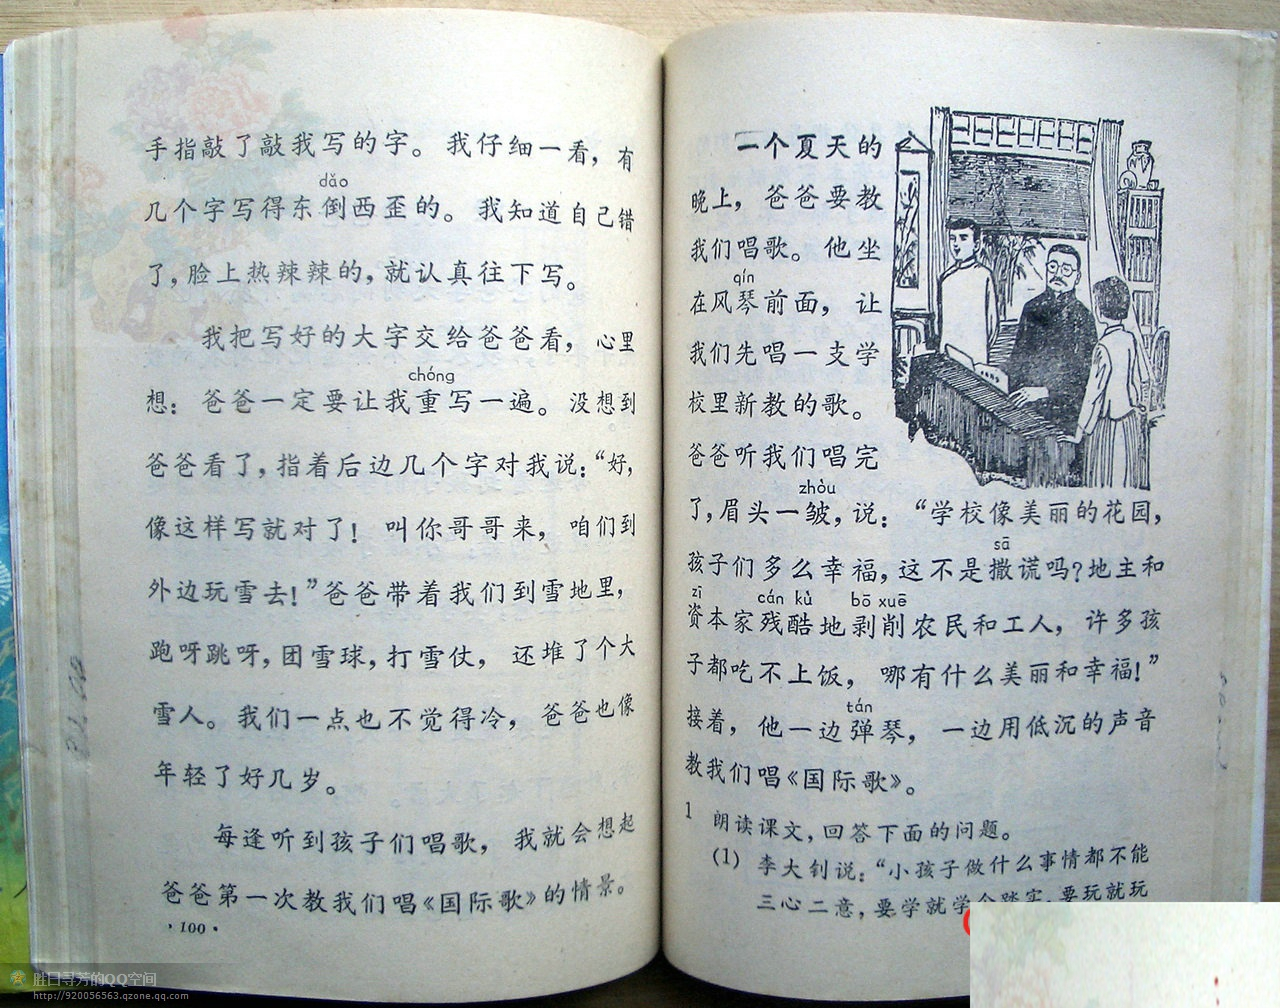 手指敲了敲我写的字。我仔细一看，有
dǎo
几个字写得东倒西歪的。我知道自己错
了，脸上热辣辣的，就认真往下写。
我把写好的大字交给爸爸看，心里
chóng
想：爸爸一定要让我重写一遍。没想到
爸爸看了，指着后边几个字对我说：“好，
像这样写就对了！叫你哥哥来，咱们到
外边玩雪去！”爸爸带着我们到雪地里，
跑呀跳呀，团雪球，打雪仗，还堆了个大
雪人。我们一点也不觉得冷，爸爸也像
年轻了好几岁。
每逢听到孩子们唱歌，我就会想起
爸爸第一次教我们唱《国际歌》的情景。
·100·
一个夏天的
晚上，爸爸要教
我们唱歌。他坐
qín
在风琴前面，让
我们先唱一支学
校里新教的歌。
爸爸听我们唱完
zhòu
了，眉头一皱，说：“学校像美丽的花园，
sā
孩子们多么幸福，这不是撒谎吗？地主和
zī cán kù bō xuē
资本家残酷地剥削农民和工人，许多孩
子都吃不上饭，哪有什么美丽和幸福！”
tán
接着，他一边弹琴，一边用低沉的声音
教我们唱《国际歌》。
1 朗读课文，回答下面的问题。
(1) 李大钊说：“小孩子做什么事情都不能
三心二意，要学就学个踏实，要玩就玩
胜日寻芳的QQ空间
http://920056563.qzone.qq.com